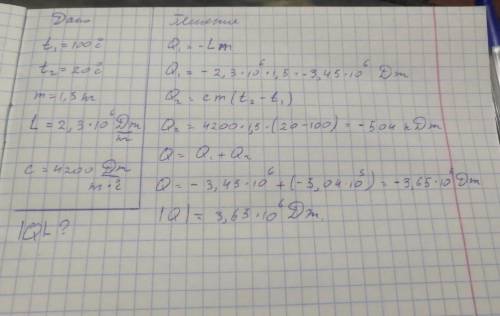 Дано
Решение
t₁ = 100 c̊
t₂ = 20 c̊
m = 1,5 кг
L = 2,3 · 10⁶ Дж/кг
c = 4200 Дж/кг · c̊
|Q| - ?
Q₁ = -Lm
Q₁ = -2,3 · 10⁶ · 1,5 = -3,45 · 10⁶ Дж
Q₂ = cm (t₂ - t₁)
Q₂ = 4200 · 1,5 · (20 - 100) = -504 кДж
Q = Q₁ + Q₂
Q = -3,45 · 10⁶ + (-5,04 · 10⁵) = -3,65 · 10⁶ Дж
|Q| = 3,65 · 10⁶ Дж.